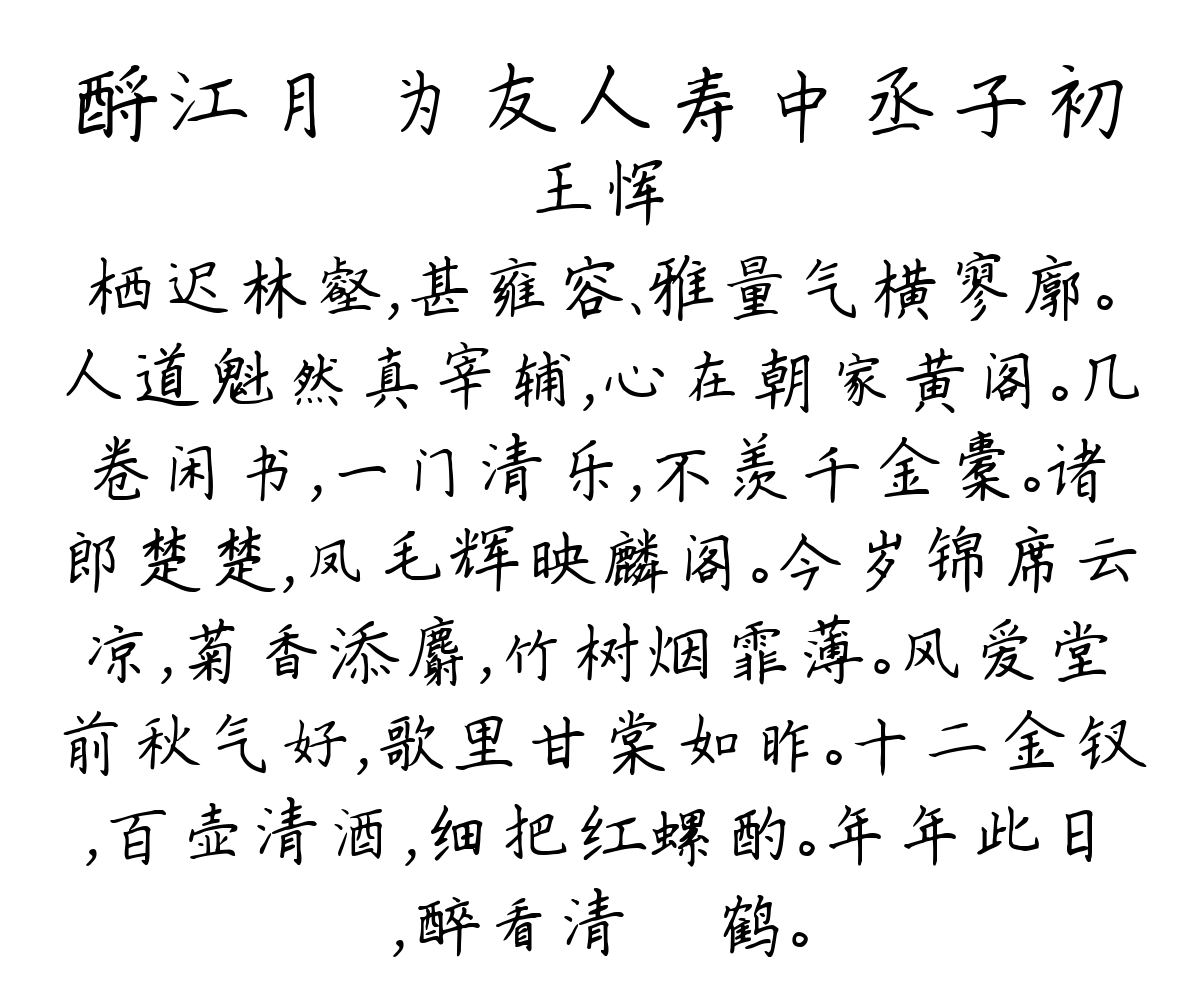 酹江月 为友人寿中丞子初
王恽
栖迟林壑,甚雍容、雅量气横寥廓。
人道魁然真宰辅,心在朝家黄阁。几
卷闲书,一门清乐,不羡千金橐。诸
郎楚楚,凤毛辉映麟阁。今岁锦席云
凉,菊香添麝,竹树烟霏薄。风爱堂
前秋气好,歌里甘棠如昨。十二金钗
,百壶清酒,细把红螺酌。年年此日
,醉看清 鹤。